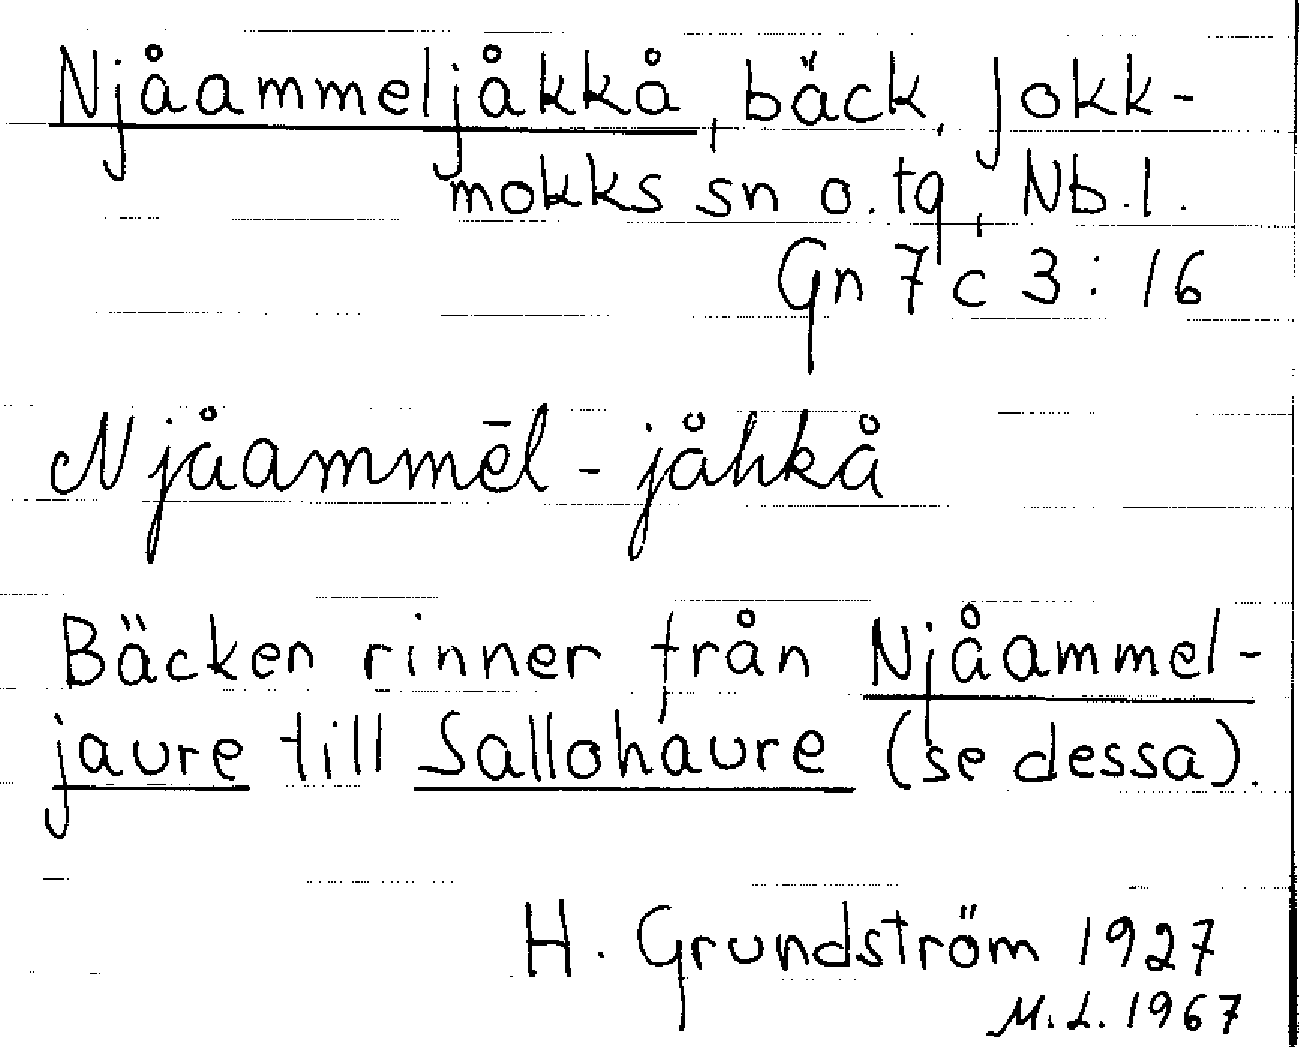 Njåammeljåkkå, bäck, Jokk-
mokks sn o. tg, Nb. l.
Gn 7 c 3 : 16
Njåammēl-jåhkå
Bäcken rinner från Njåammel-
jaure till Sallohaure (se dessa).
H. Grundström 1927
M. L. 1967